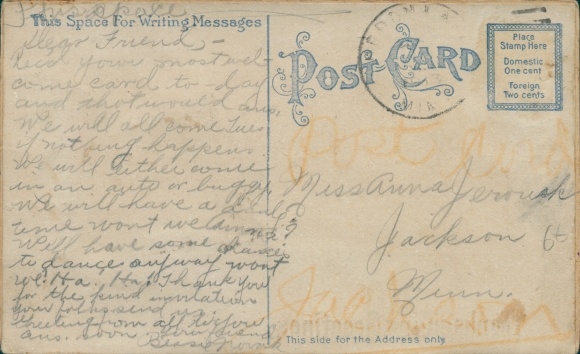 This Space For Writing Messages
Dear Friend,-
Recd your most wel-
come card to day
and thot would ans.
We will all come Tues
if nothing happens.
We will either come
in an auto or buggy
We will have a
time wont we
Will have some
to dance anyway wont
we. Ha. Ha. Thank you
for the kind invitation
you folks send us
Greeting from all
ans. soon
Bessie
POST CARD
Place
Stamp Here
Domestic
One cent
Foreign
Two cents
MINN
Post Card
Miss Anna
Jackson
Minn.
This side for the Address only.